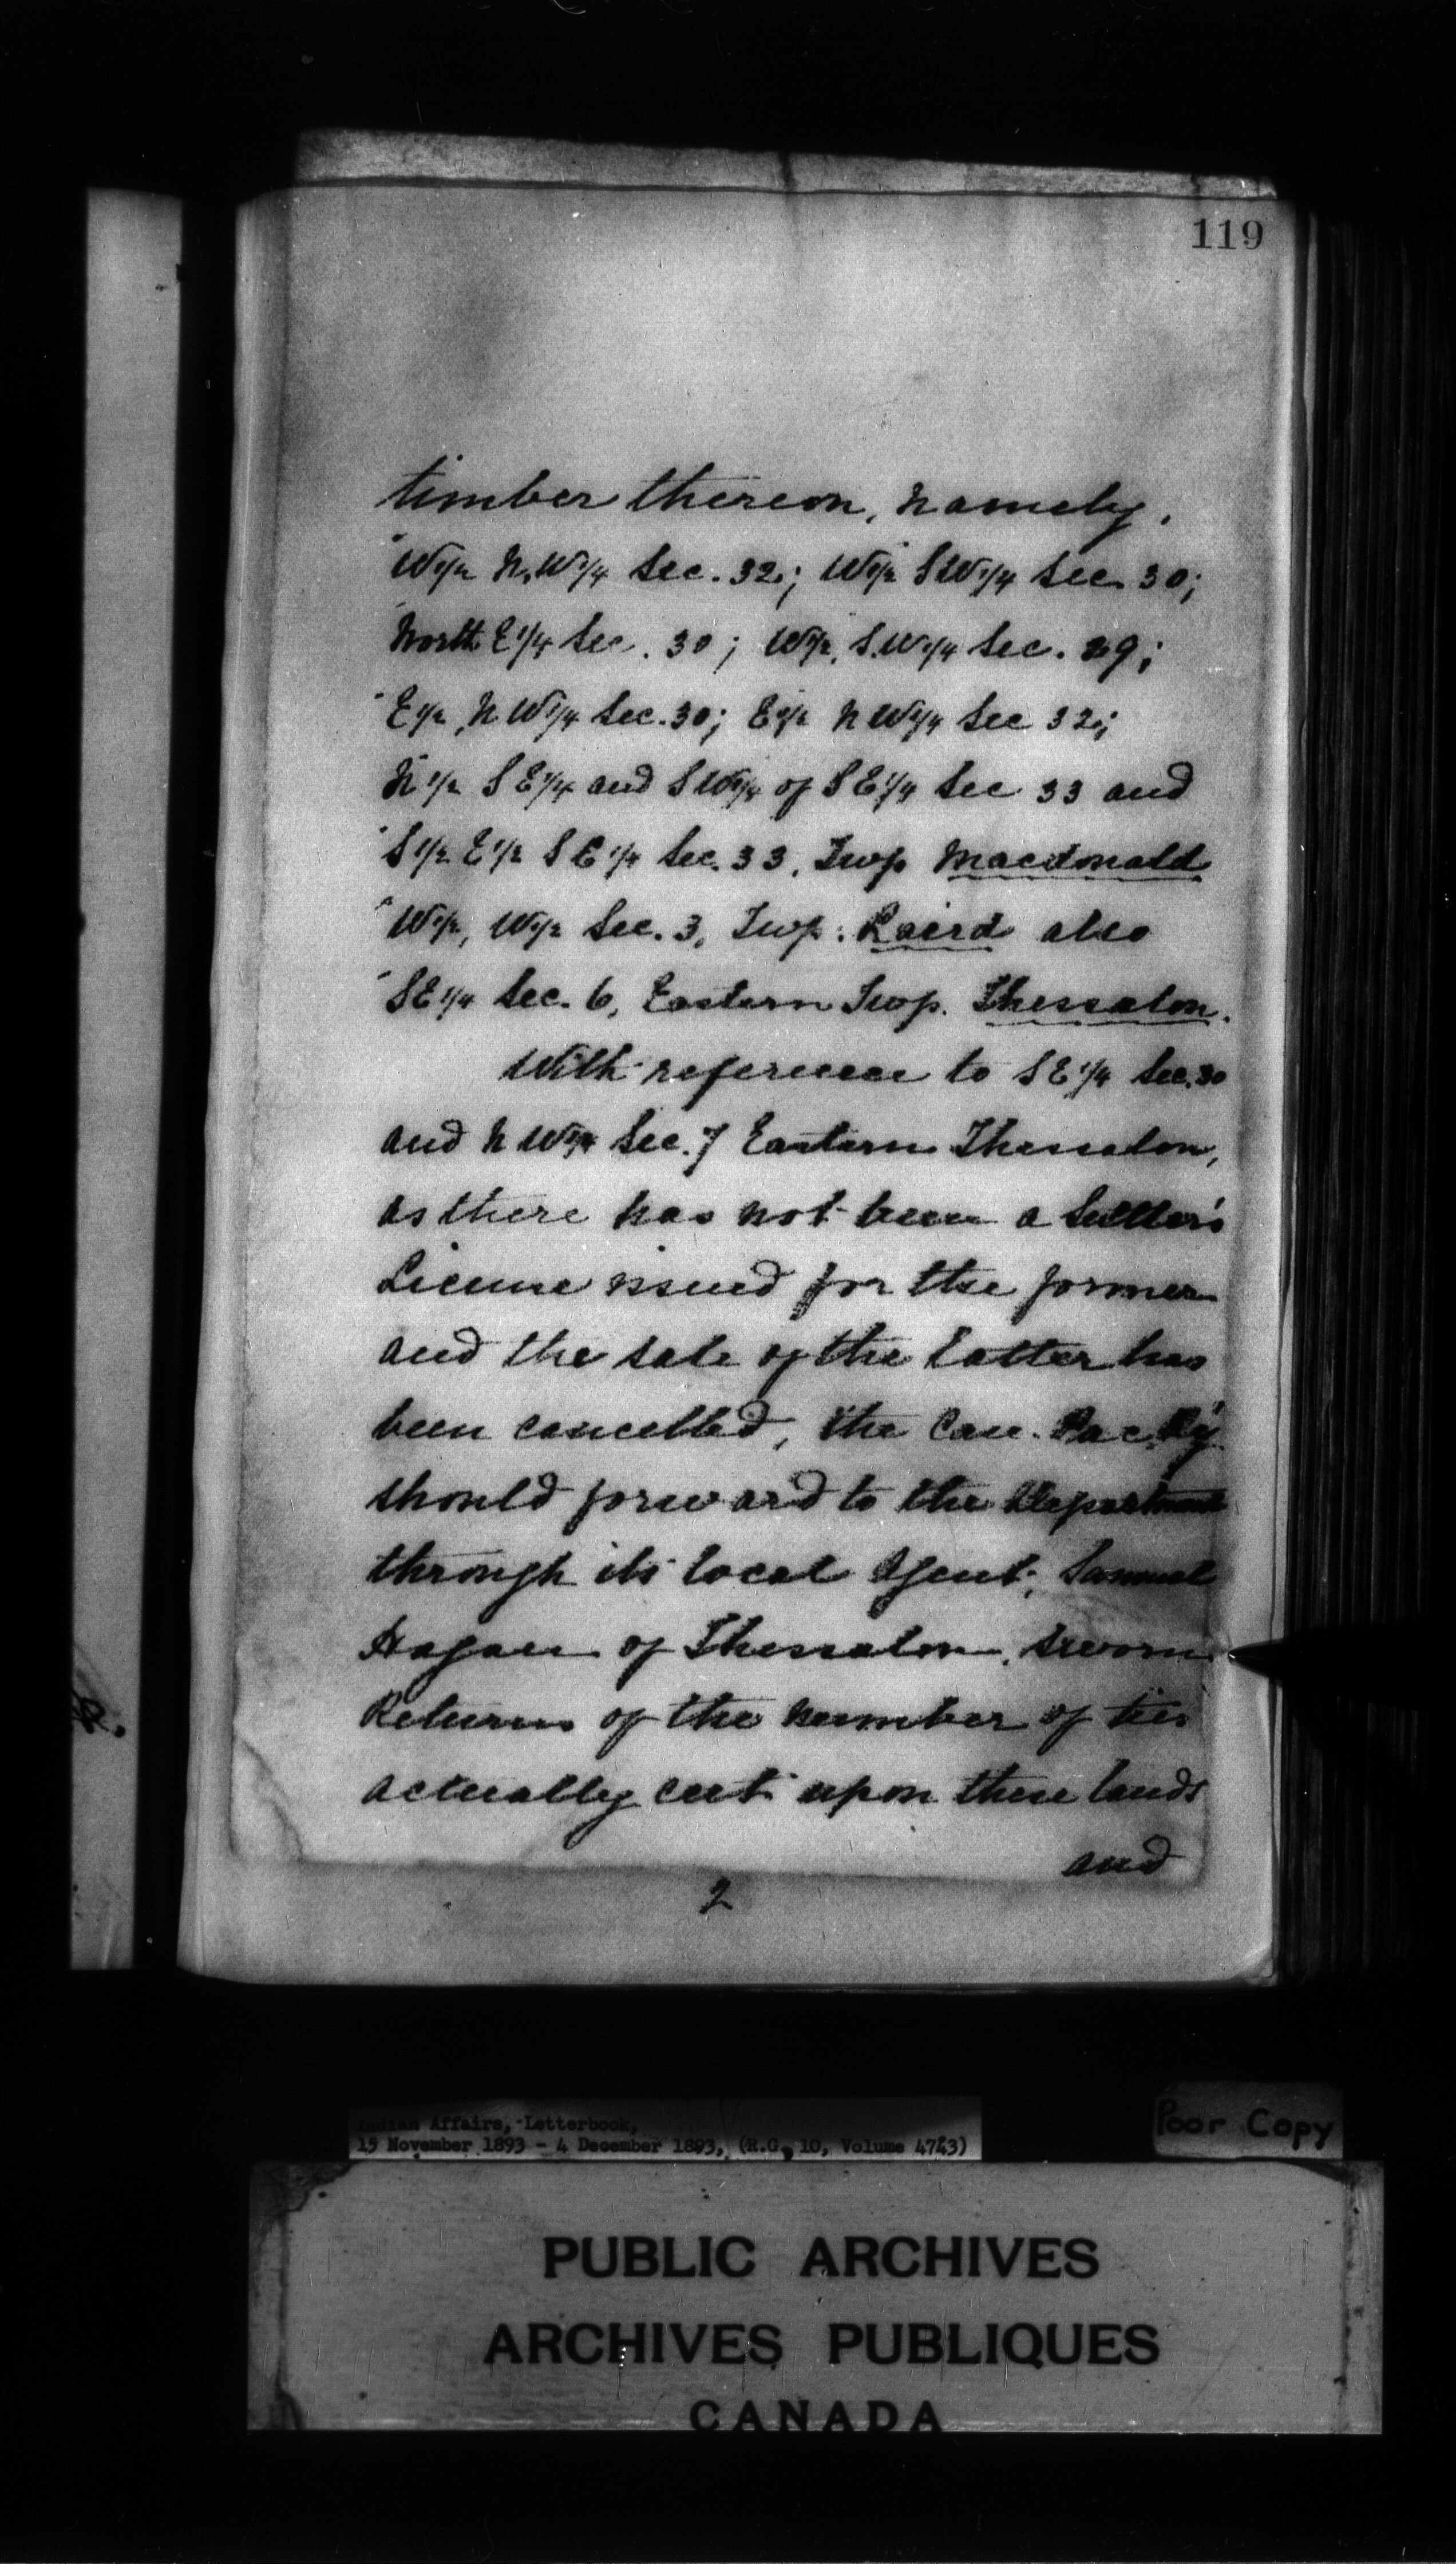 119
timber thereon, namely,
W1/2 N.W1/4 Sec. 32; W1/2 SW1/4 Sec. 30;
North E1/4 Sec. 30; W1/2, S.W1/4 Sec. 29;
E1/2, N W1/4 Sec. 30; E1/2 N W1/4 Sec 32;
N 1/2 S E1/4 and S W1/4 of S E1/4 Sec 33 and
S 1/2 E 1/2 S E 1/4 Sec. 33, Twp Macdonald
W1/2, W1/2 Sec. 3, Twp. Laird also
SE1/4 Sec. 6, Eastern Twp. Thessalon.
With reference to S E 1/4 Sec. 30
and N W1/4 Sec. 7 Eastern Thessalon,
as there has not been a Settler's
License issued for the former
and the sale of the latter has
been cancelled, the Can. Pac. Ry.
should forward to the Department
through its local Agent, Samuel
Hagan of Thessalon, sworn
Returns of the number of ties
actually cut upon these lands
and
2
Indian Affairs, Letterbook,
15 November 1893 - 4 December 1893, (R.G. 10, Volume 4743)
Poor Copy
PUBLIC ARCHIVES
ARCHIVES PUBLIQUES
CANADA